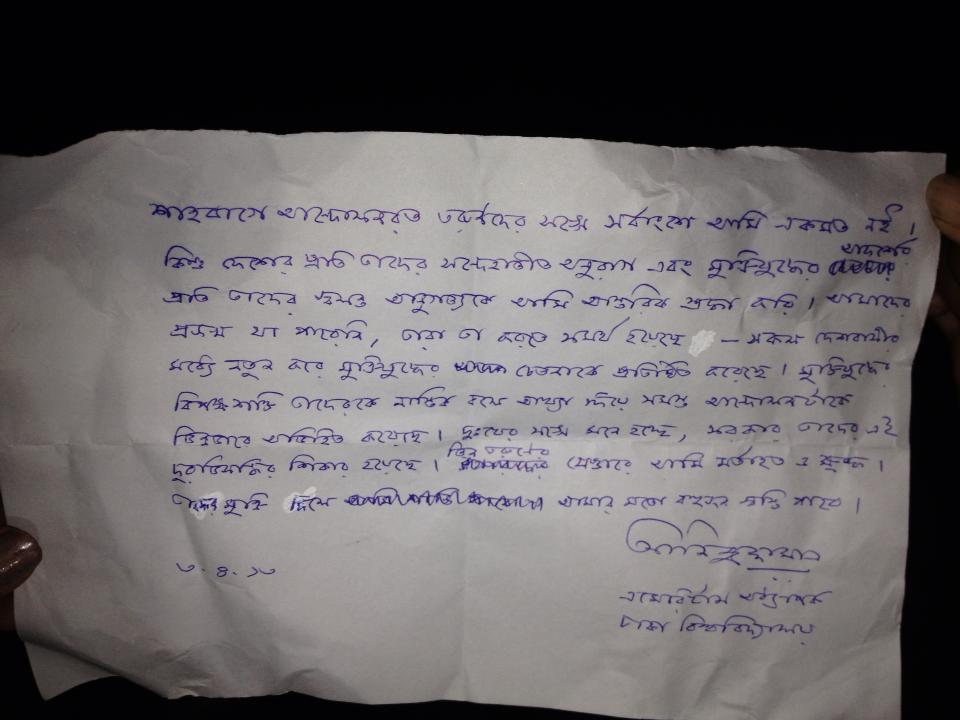 শাহবাগে আন্দোলনরত তরুণদের সঙ্গে সর্বাংশে আমি একমত নই।
কিন্তু দেশের প্রতি তাদের সন্দেহাতীত অনুরাগ এবং মুক্তিযুদ্ধের আদর্শের
প্রতি তাদের আনুগত্যকে আমি আন্তরিক শ্রদ্ধা করি। আমাদের
প্রজন্ম যা পারেনি, তারা তা করতে সমর্থ হয়েছে – সকল দেশবাসীর
মধ্যে নতুন করে মুক্তিযুদ্ধের চেতনাকে প্রতিষ্ঠিত করেছে। মুক্তিযুদ্ধের
বিপক্ষ শক্তি তাদেরকে নাস্তিক বলে আখ্যা দিয়ে সমস্ত আন্দোলনটাকে
ভিন্নভাবে চিহ্নিত করেছে। দুঃখের সঙ্গে মনে হচ্ছে, সরকার তাদের এই
দুরভিসন্ধির শিকার হয়েছে। তিন তরুণের গ্রেপ্তারে আমি মর্মাহত ও ক্ষুব্ধ।
তাদের মুক্তি দিলে আমার মতো বহুজন স্বস্তি পাবে।
আনিসুজ্জামান
৩.৪.১৩
এমেরিটাস অধ্যাপক
ঢাকা বিশ্ববিদ্যালয়